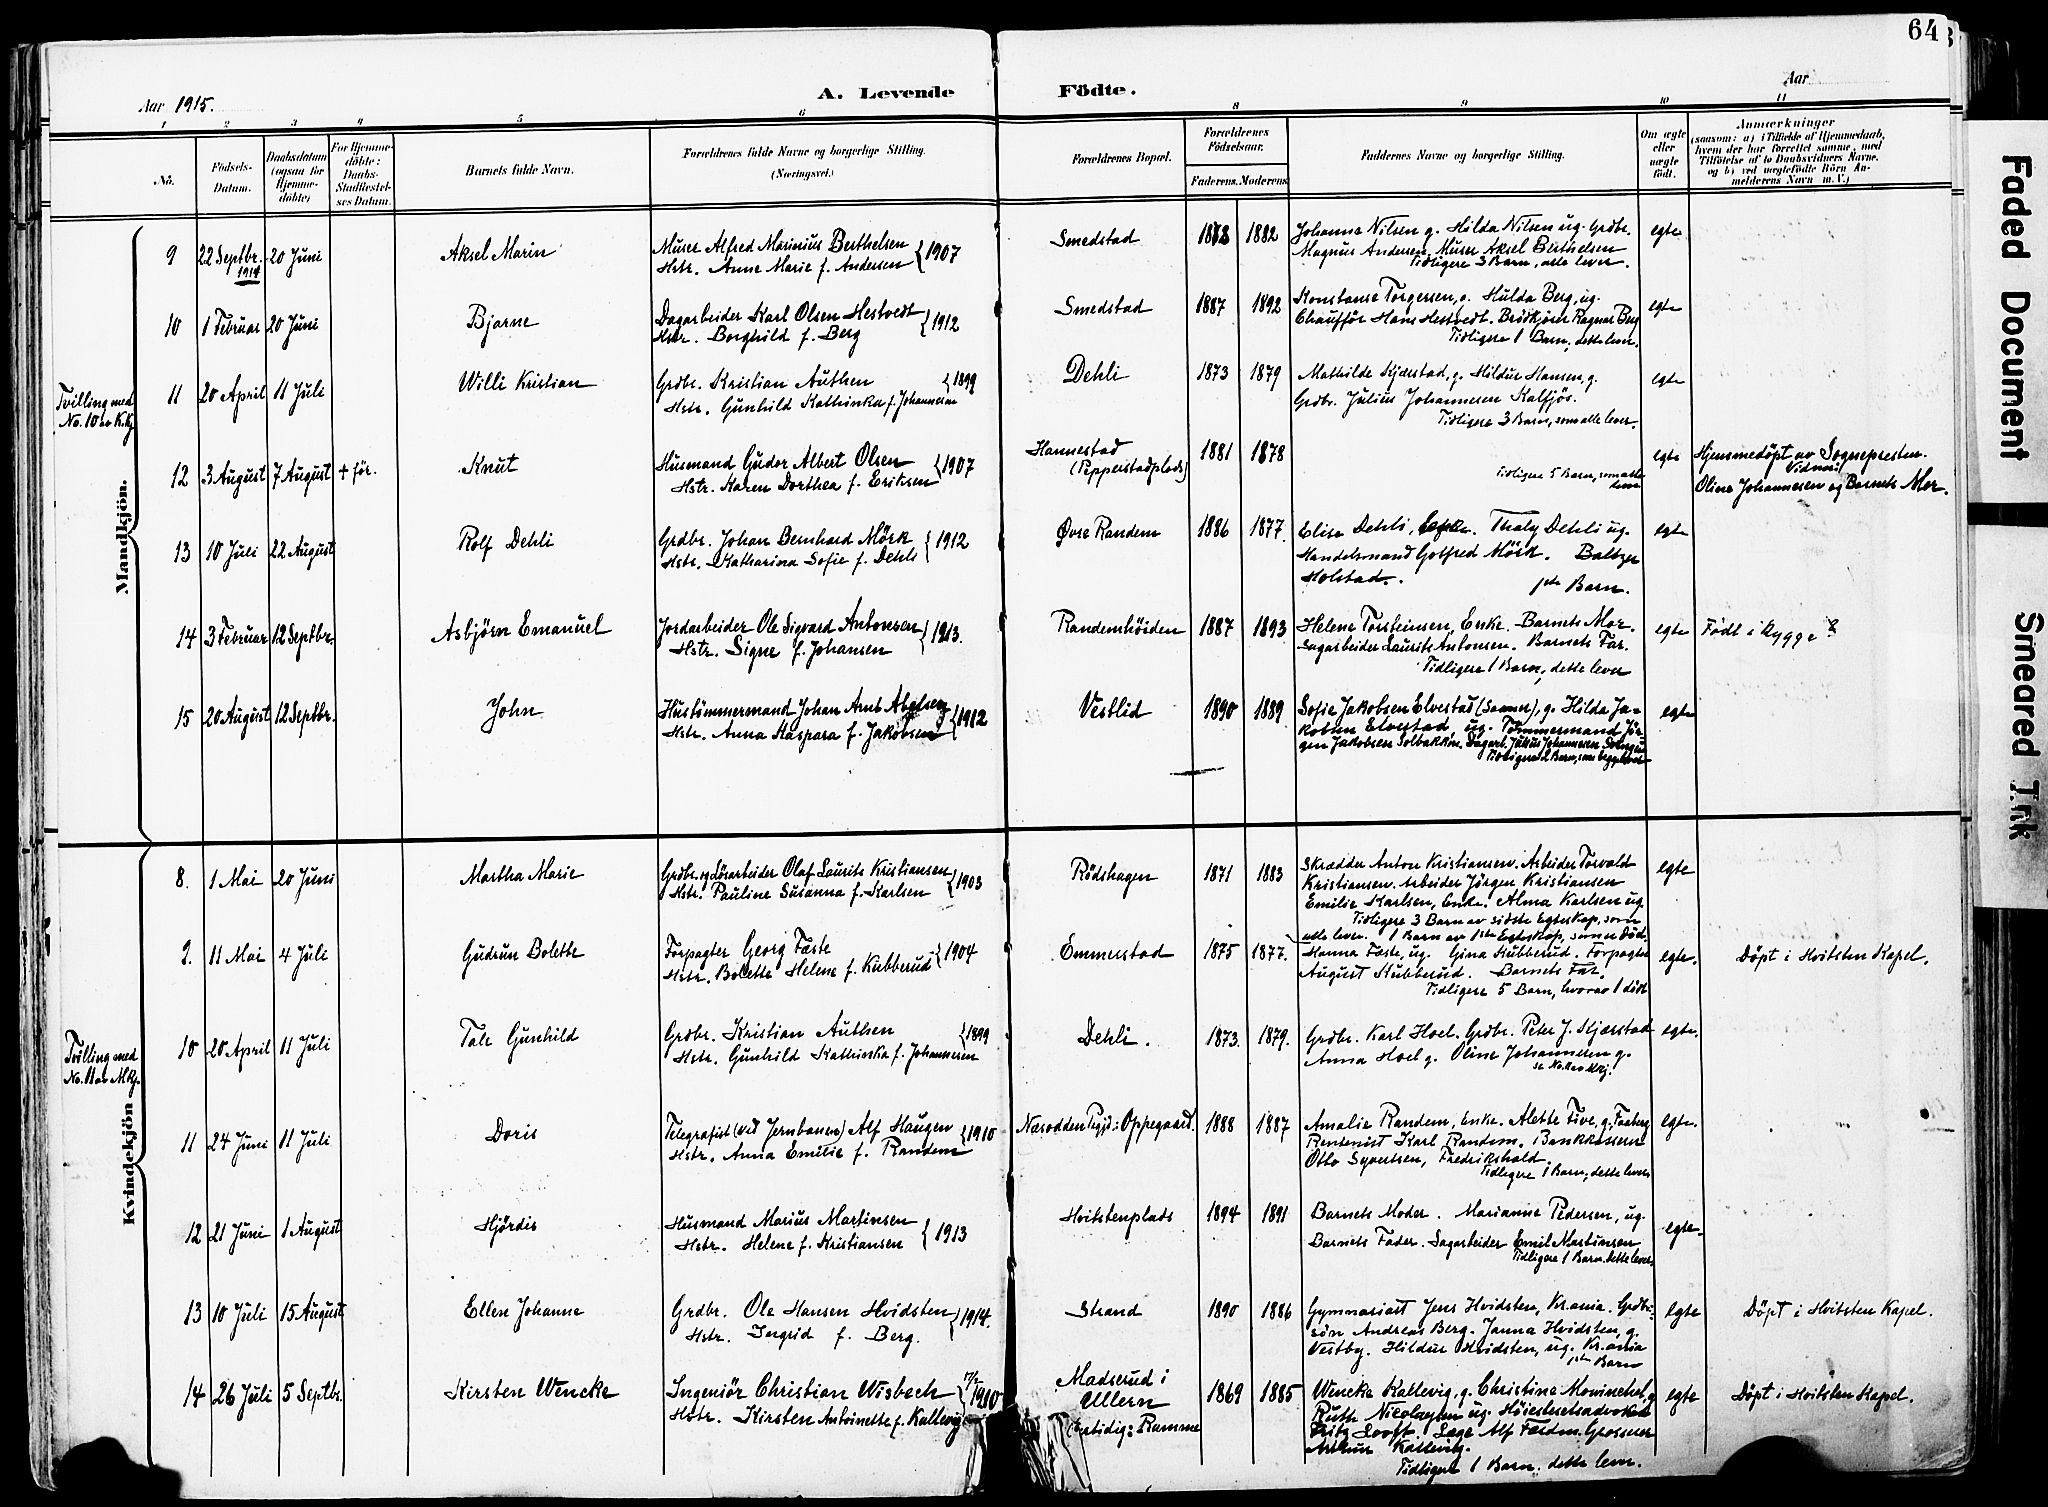 64
Aar 1915.
A. Levende Födte.
Aar
1 2 3 4 5 6 8 9 10 11
No.
Födsels-Datum.
Daabsdatum (ogsaa for Hjemme-döbte)
For Hjemme-döbte: Daabs-Stadfæstel-ses Datum.
Barnets fulde Navn.
Forældrenes fulde Navne og borgerlige Stilling. (Næringsvei.)
Forældrenes Bopæl.
Forældrenes Födselsaar.
Faderens. Moderens
Faddernes Navne og borgerlige Stilling.
Om ægte eller uægte födt.
Anmærkninger
(saasom: a) i Tilfælde af Hjemmedaab,
hvem der har forrettet samme, med
Tilföielse af to Daabsvidners Navne,
og b) ved uægtefödte Börn An-
melderens Navn m. V.)
Mandkjön.
9 22 Septbr. 1914 20 Juni Aksel Marin
Murer Alfred Marinius Berthelsen
Hstr. Anne Marie f. Andersen { 1907
Smedstad 1882 egte
Johanne Nilsen g. Hilda Nilsen ug. Grdbr.
Magnus Andersen, Murer Aksel Berthelsen
Tidligere 3 Barn, alle lever.
10 1 Februar 20 Juni Bjarne
Dagarbeider Karl Olsen Hestvedt
Hstr. Borghild f. Berg { 1912
Smedstad 1887 1892 egte
Konstanse Torgersen, g. Hulda Berg, ug.
Chauffør Hans Hestvedt. Brödkjörer Ragnar Berg
Tidligere 1 Barn, dette lever.
Tvilling med
No. 10 av K.kj.
11 20 April 11 Juli Willi Kristian
Grdbr. Kristian Authen
Hstr. Gunhild Kathinka f. Johannesen { 1899
Dehli 1873 1879 egte
Mathilde Skjærstad, g. Hildur Hansen, g.
Grdbr. Julius Johannesen Kalfjös.
Tidligere 3 Barn, som alle lever.
12 3 August 7 August + för. Knut
Husmand Gudor Albert Olsen
Hstr. Karen Dorthea f. Eriksen { 1907
Hannestad
(Pepperstadplads) 1881 1878 egte
Tidligere 5 Barn, som alle lever
Hjemmedöpt av Sognepresten.
Vidner:
Oline Johannesen og Barnets Mor.
13 10 Juli 22 August Rolf Dehli
Grdbr. Johan Bernhard Mörk
Hstr. Katharina Sofie f. Dehli { 1912
Øvre Randem 1886 1877. egte
Elise Dehli, Enke. Thaly Dehli ug.
Handelsmand Gotfred Mörk. Baltzer
Holstad. 1ste Barn.
14 3 Februar 12 Septbr. Asbjörn Emanuel
Jordarbeider Ole Sigvard Antonsen
Hstr. Signe f. Johansen { 1913.
Randemhöiden 1887 1893 egte
Helene Torsteinsen, Enke. Barnets Mor.
Sagarbeider Laurits Antonsen. Barnets Far.
Tidligere 1 Barn, dette lever
Födt i Rygge
15 20 August 12 Septbr. John
Hustömmermand Johan Arnt Abelsen
Hstr. Anna Kaspara f. Jakobsen { 1912
Vestlid 1890 1889 egte
Sofie Jakobsen Elvestad (Sonner), g. Hilda Ja-
kobsen Elvestad ug. Tömmermand Jör-
gen Jakobsen Solbakken. Dagarb. Julius Johannesen
Tidligere 2 Barn, som begge lever
Kvindekjön
8. 1 Mai 20 Juni Martha Marie
Grdbr. og Lösarbeider Olaf Laurits Kristiansen
Hstr. Pauline Susanna f. Karlsen { 1903
Rödshagen 1871 1883 egte
Skrædder Anton Kristiansen. Arbeider Torvald
Kristiansen. Arbeider Jörgen Kristiansen
Emilie Karlsen, Enke. Alma Karlsen ug.
Tidligere 3 Barn av sidste Egteskap, som
alle lever. 1 Barn av 1ste Egteskap, som er död.
9. 11 Mai 4 Juli Gudrun Bolette
Forpagter Georg Fæste
Hstr. Bolette Helene f. Kubberud { 1904
Emmerstad 1875 1877. egte.
Hanna Fæste, ug. Gina Kubberud. Forpagter
August Kubberud. Barnets Far.
Tidligere 5 Barn, hvorav 1 död
Döpt i Hvitsten Kapel.
Tvilling med
No. 11 av M.kj.
10 20 April 11 Juli Tale Gunhild
Grdbr. Kristian Authen
Hstr. Gunhild Kathinka f. Johannesen { 1899
Dehli. 1873. 1879. egte.
Grdbr. Karl Hoel. Grdbr. Peter J. Skjærstad
Anna Hoel g. Oline Johannesen g.
se No. 11 av M.kj.
11 24 Juni 11 Juli Doris
Telegrafist (ved Jernbanen) Alf Haugen
Hstr. Anna Emilie f. Randem { 1910
Næsodden Pgjd: Oppegaard. 1888 1887 egte.
Amalie Randem, Enke. Alette Five, g.
Rentenist Karl Randem. Bankkasserer
Otto Syvertsen, Fredrikshald.
Tidligere 1 Barn, dette lever
12 21 Juni 1 August Hjördis
Husmand Marius Martinsen
Hstr. Helene f. Kristiansen { 1913
Hvitstenplads 1894 1891 egte
Barnets Moder. Marianne Pedersen, ug.
Barnets Fader. Sagarbeider Emil Martinsen
Tidligere 1 Barn. dette lever
13 10 Juli 15 August Ellen Johanne
Grdbr. Ole Hansen Hvidsten
Hstr. Ingrid f. Berg. { 1914.
Strand 1890 1886 egte
Gymnasiast Jens Hvidsten, Kr.ania. Grdbr.-
sön Andreas Berg. Janna Hvidsten, g.
Vestby. Hildur Hvidsten, ug. Kr.ania
1ste Barn
Döpt i Hvitsten Kapel.
14 26 Juli 5 Septbr. Kirsten Wencke
Ingeniör Christian Wisbech
Hstr. Kirsten Antoinette f. Kallevig { 1910
Madserud i
Ullern
(Fortidig: Ramme 1869 1885 egte
Wencke Kallevig, g. Christine g
Ruth Nicolaysen ug. Höiesteretsadvokat
Fritz Looft. Læge Alf Færden. Grosserer
Arthur Kallevig.
Tidligere 1 Barn. dette lever.
Döpt i Hvitsten Kapel.
Faded Document
Smeared Ink